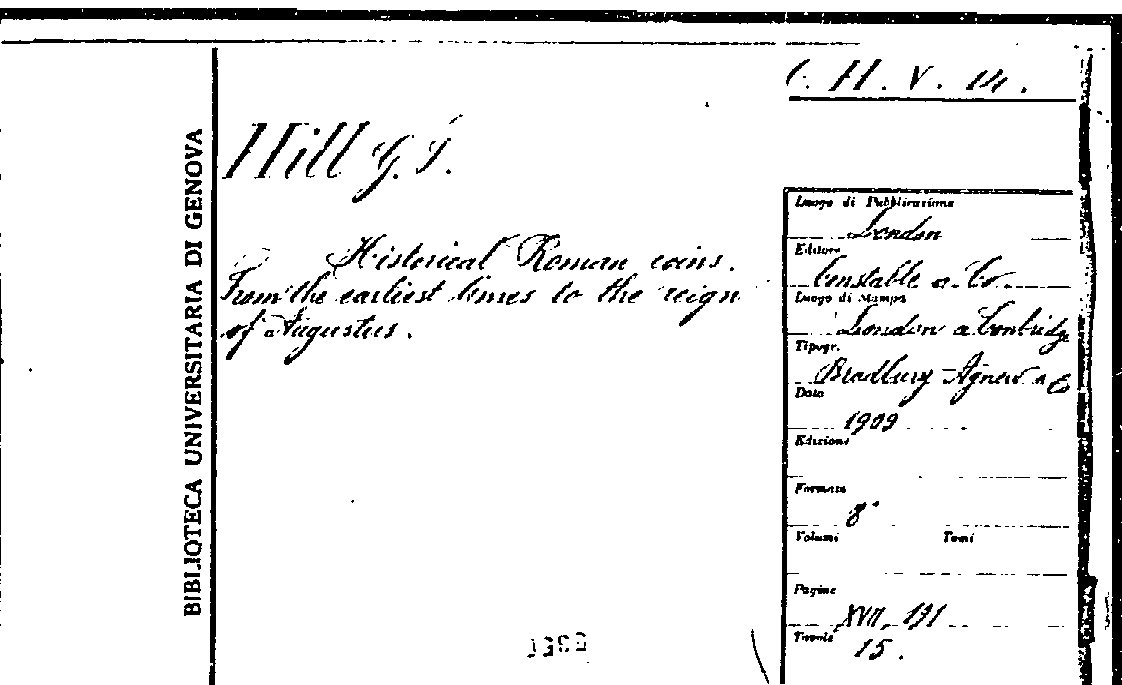 C. H. V. 14.
BIBLIOTECA UNIVERSITARIA DI GENOVA
Hill G. F.
Historical Roman coins.
From the earliest times to the reign
of Augustus.
Luogo di Pubblicazione
London
Editore
Constable a. Co.
Luogo di Stampa
London a Tonbridge
Tipogr.
Bradbury Agnew a
Data
1909
Edizione
Formato
8°
Volumi Tomi
Pagine
XVII, 191
Tavole
15.